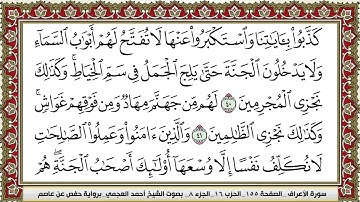 كَذَّبُوا۟ بِـَٔايَـٰتِنَا وَٱسْتَكْبَرُوا۟ عَنْهَا لَا تُفَتَّحُ لَهُمْ أَبْوَٰبُ ٱلسَّمَآءِ
وَلَا يَدْخُلُونَ ٱلْجَنَّةَ حَتَّىٰ يَلِجَ ٱلْجَمَلُ فِى سَمِّ ٱلْخِيَاطِ ۚ وَكَذَٰلِكَ
نَجْزِى ٱلْمُجْرِمِينَ ٤٠ لَهُم مِّن جَهَنَّمَ مِهَادٌ وَمِن فَوْقِهِمْ غَوَاشٍ ۚ
وَكَذَٰلِكَ نَجْزِى ٱلظَّـٰلِمِينَ ٤١ وَٱلَّذِينَ ءَامَنُوا۟ وَعَمِلُوا۟ ٱلصَّـٰلِحَـٰتِ
لَا نُكَلِّفُ نَفْسًا إِلَّا وُسْعَهَآ أُو۟لَـٰٓئِكَ أَصْحَـٰبُ ٱلْجَنَّةِ ۖ هُمْ
سورة الأعراف_ الصفحة ١٥٥_ الحزب ١٦_ الجزء ٨_ بصوت الشيخ أحمد العجمي_ برواية حفص عن عاصم